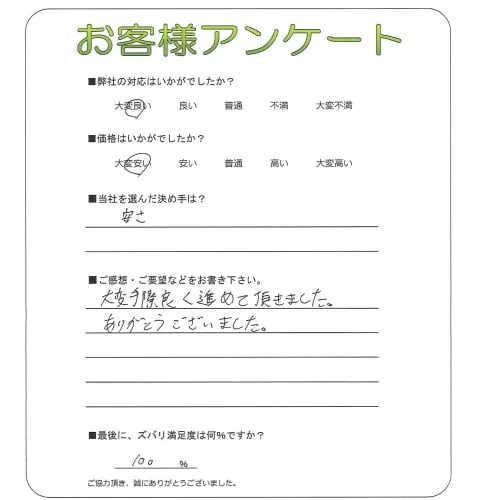 お客様アンケート
■弊社の対応はいかがでしたか？
大変良い 良い 普通 不満 大変不満
■価格はいかがでしたか？
大変安い 安い 普通 高い 大変高い
■当社を選んだ決め手は？
安さ
■ご感想・ご要望などをお書き下さい。
大変手際良く進めて頂きました。
ありがとうございました。
■最後に、ズバリ満足度は何%ですか？
100 %
ご協力頂き、誠にありがとうございました。